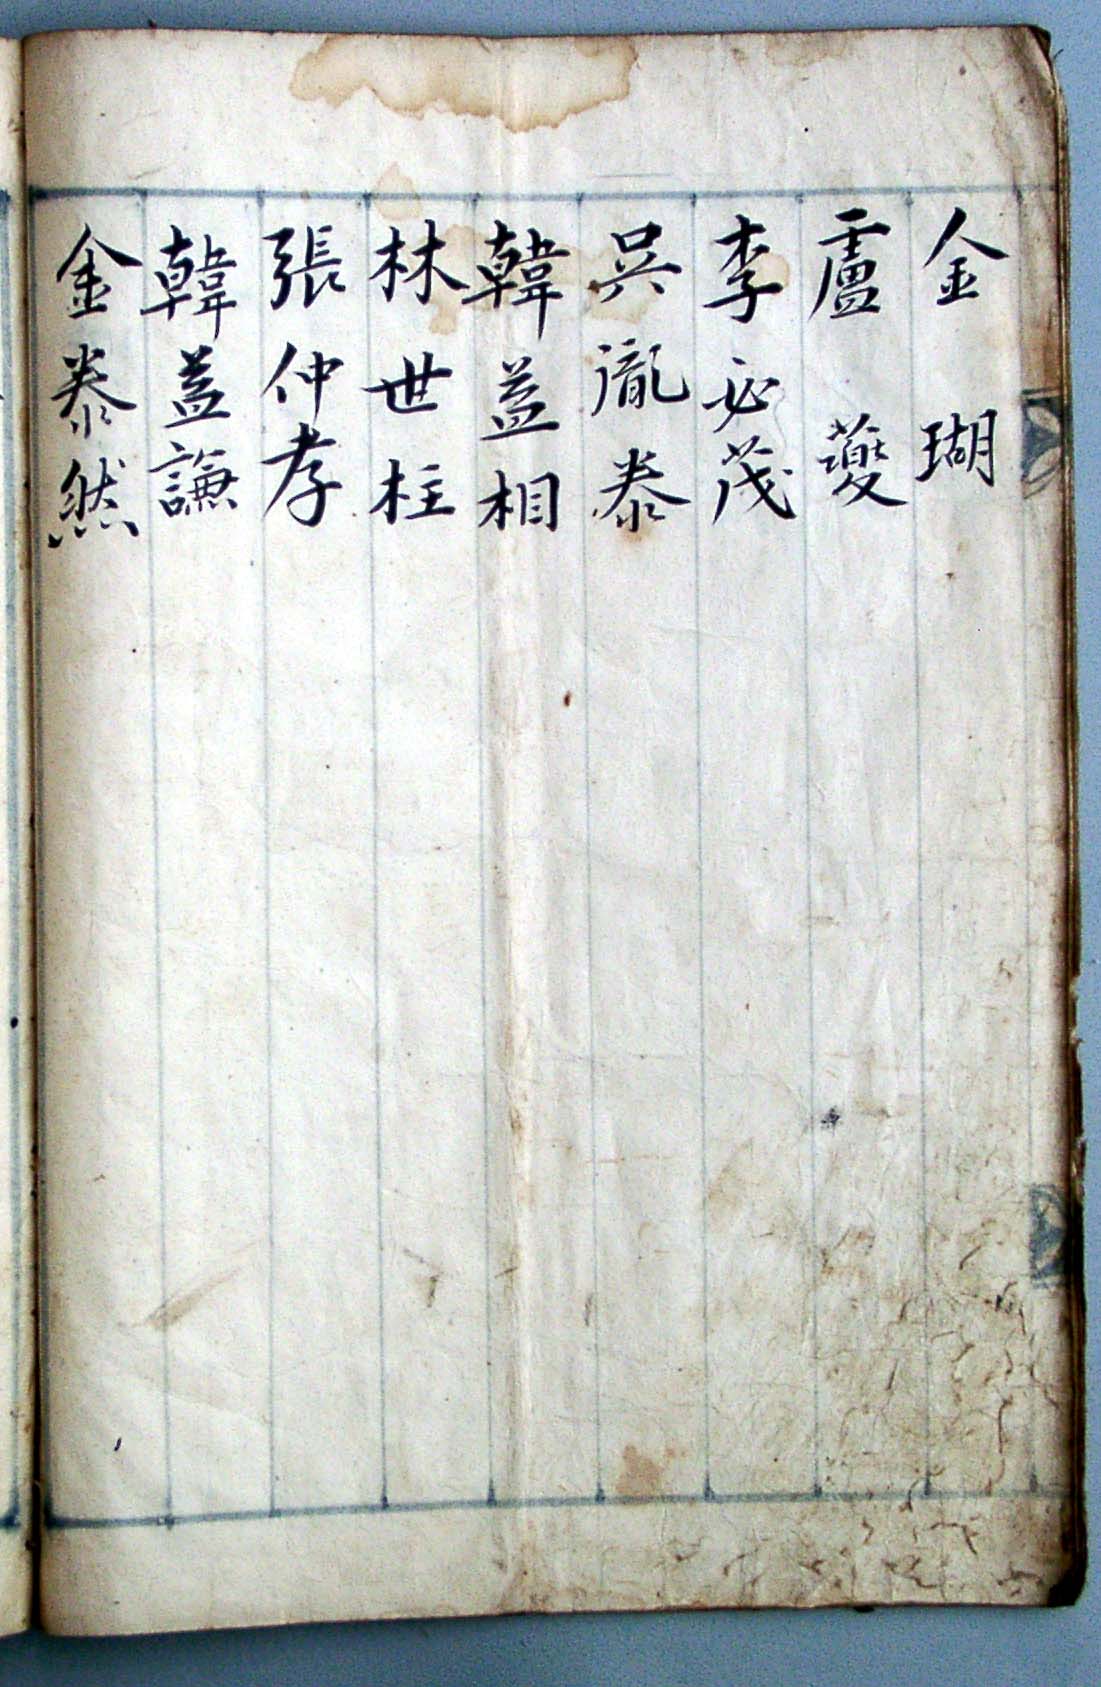 金瑚
盧夔
李必茂
吳胤泰
韓益相
林世柱
張仲孝
韓益謙
金泰然